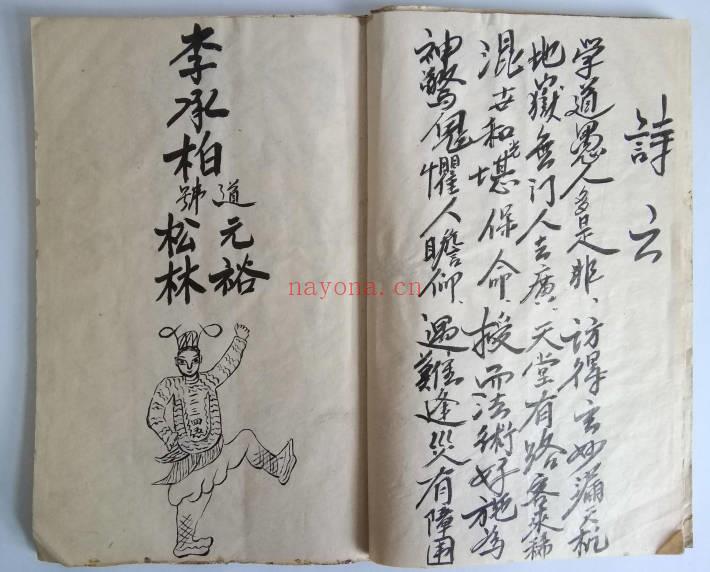 詩云
学道愚人多是非、访得玄妙满天机
地獄無门人去廣、天堂有路客來稀
混世和光堪保命、授而法術好施為
神驚鬼懼人瞻仰、遇難逢災有障囲
李承柏
號松林
道元裕
二三四五
nayona.cn